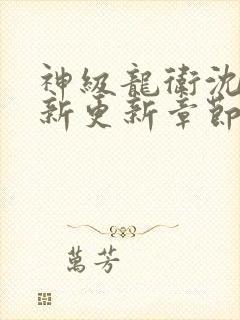 神級龍衛沈
新更新章節
萬芳